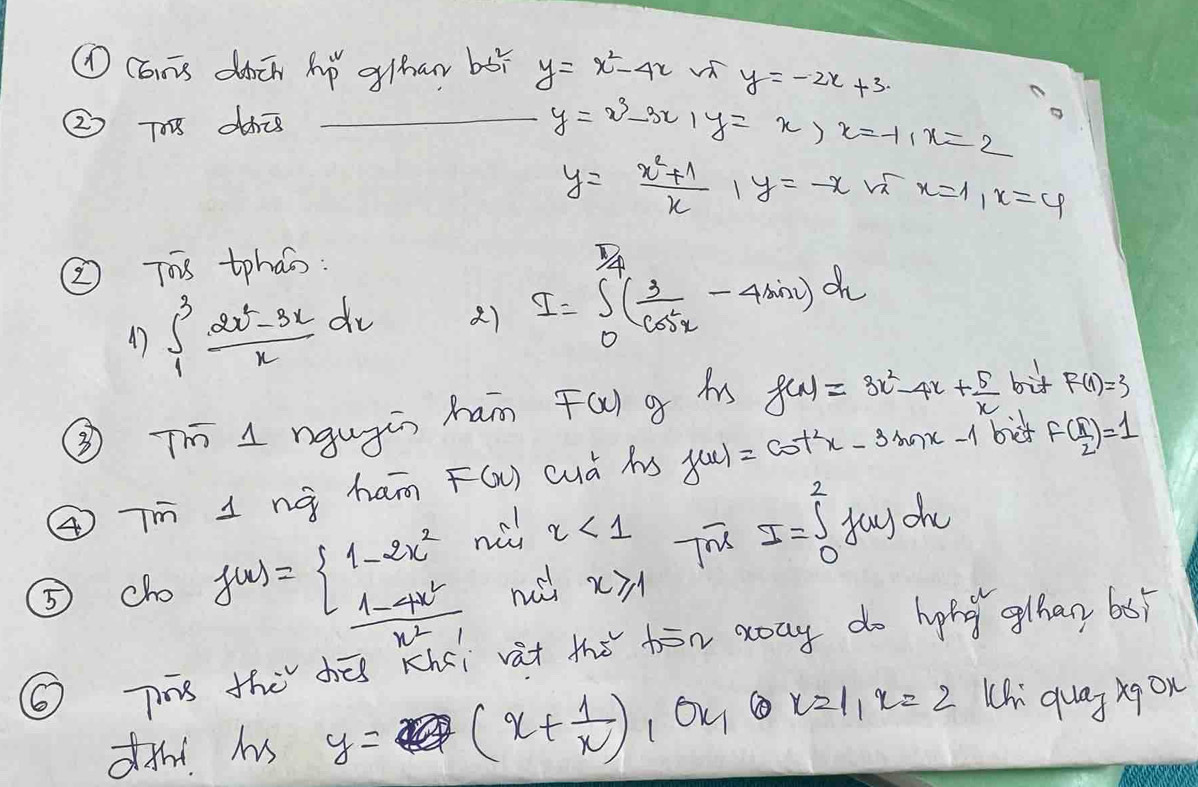 ① Tính dtích hp glhạn bởi y = x² - 4x và y = -2x + 3.
② Tính dtích ———— y = x³ - 3x, y = x, x = -1, x = 2
y = (x² + 1)/x, y = -x và x = 1, x = 4
② Tính tphân:
1) ∫₁³ (2x² - 3x)/x dx 2) I = ∫₀^(π/4) (3/cos²x - 4sinx) dx
③ Tìm 1 nguyên hàm F(x) hs f(x) = 3x² - 4x + 5/x biết F(1) = 3
④ Tìm 1 ng hàm F(x) của hs f(x) = cot²x - 3sinx - 1 biết F(π/2) = 1
⑤ Cho f(x) = { 1 - 2x² nếu x < 1 Tính I = ∫₀² f(x) dx
(1 - 4x²)/x² nếu x ≥ 1
⑥ Tính thể tích khối vật thể tròn xoay do hphg glhạn bởi
đthị hs y = (x + 1/x), Ox, x = 1, x = 2 khi quay xq Ox